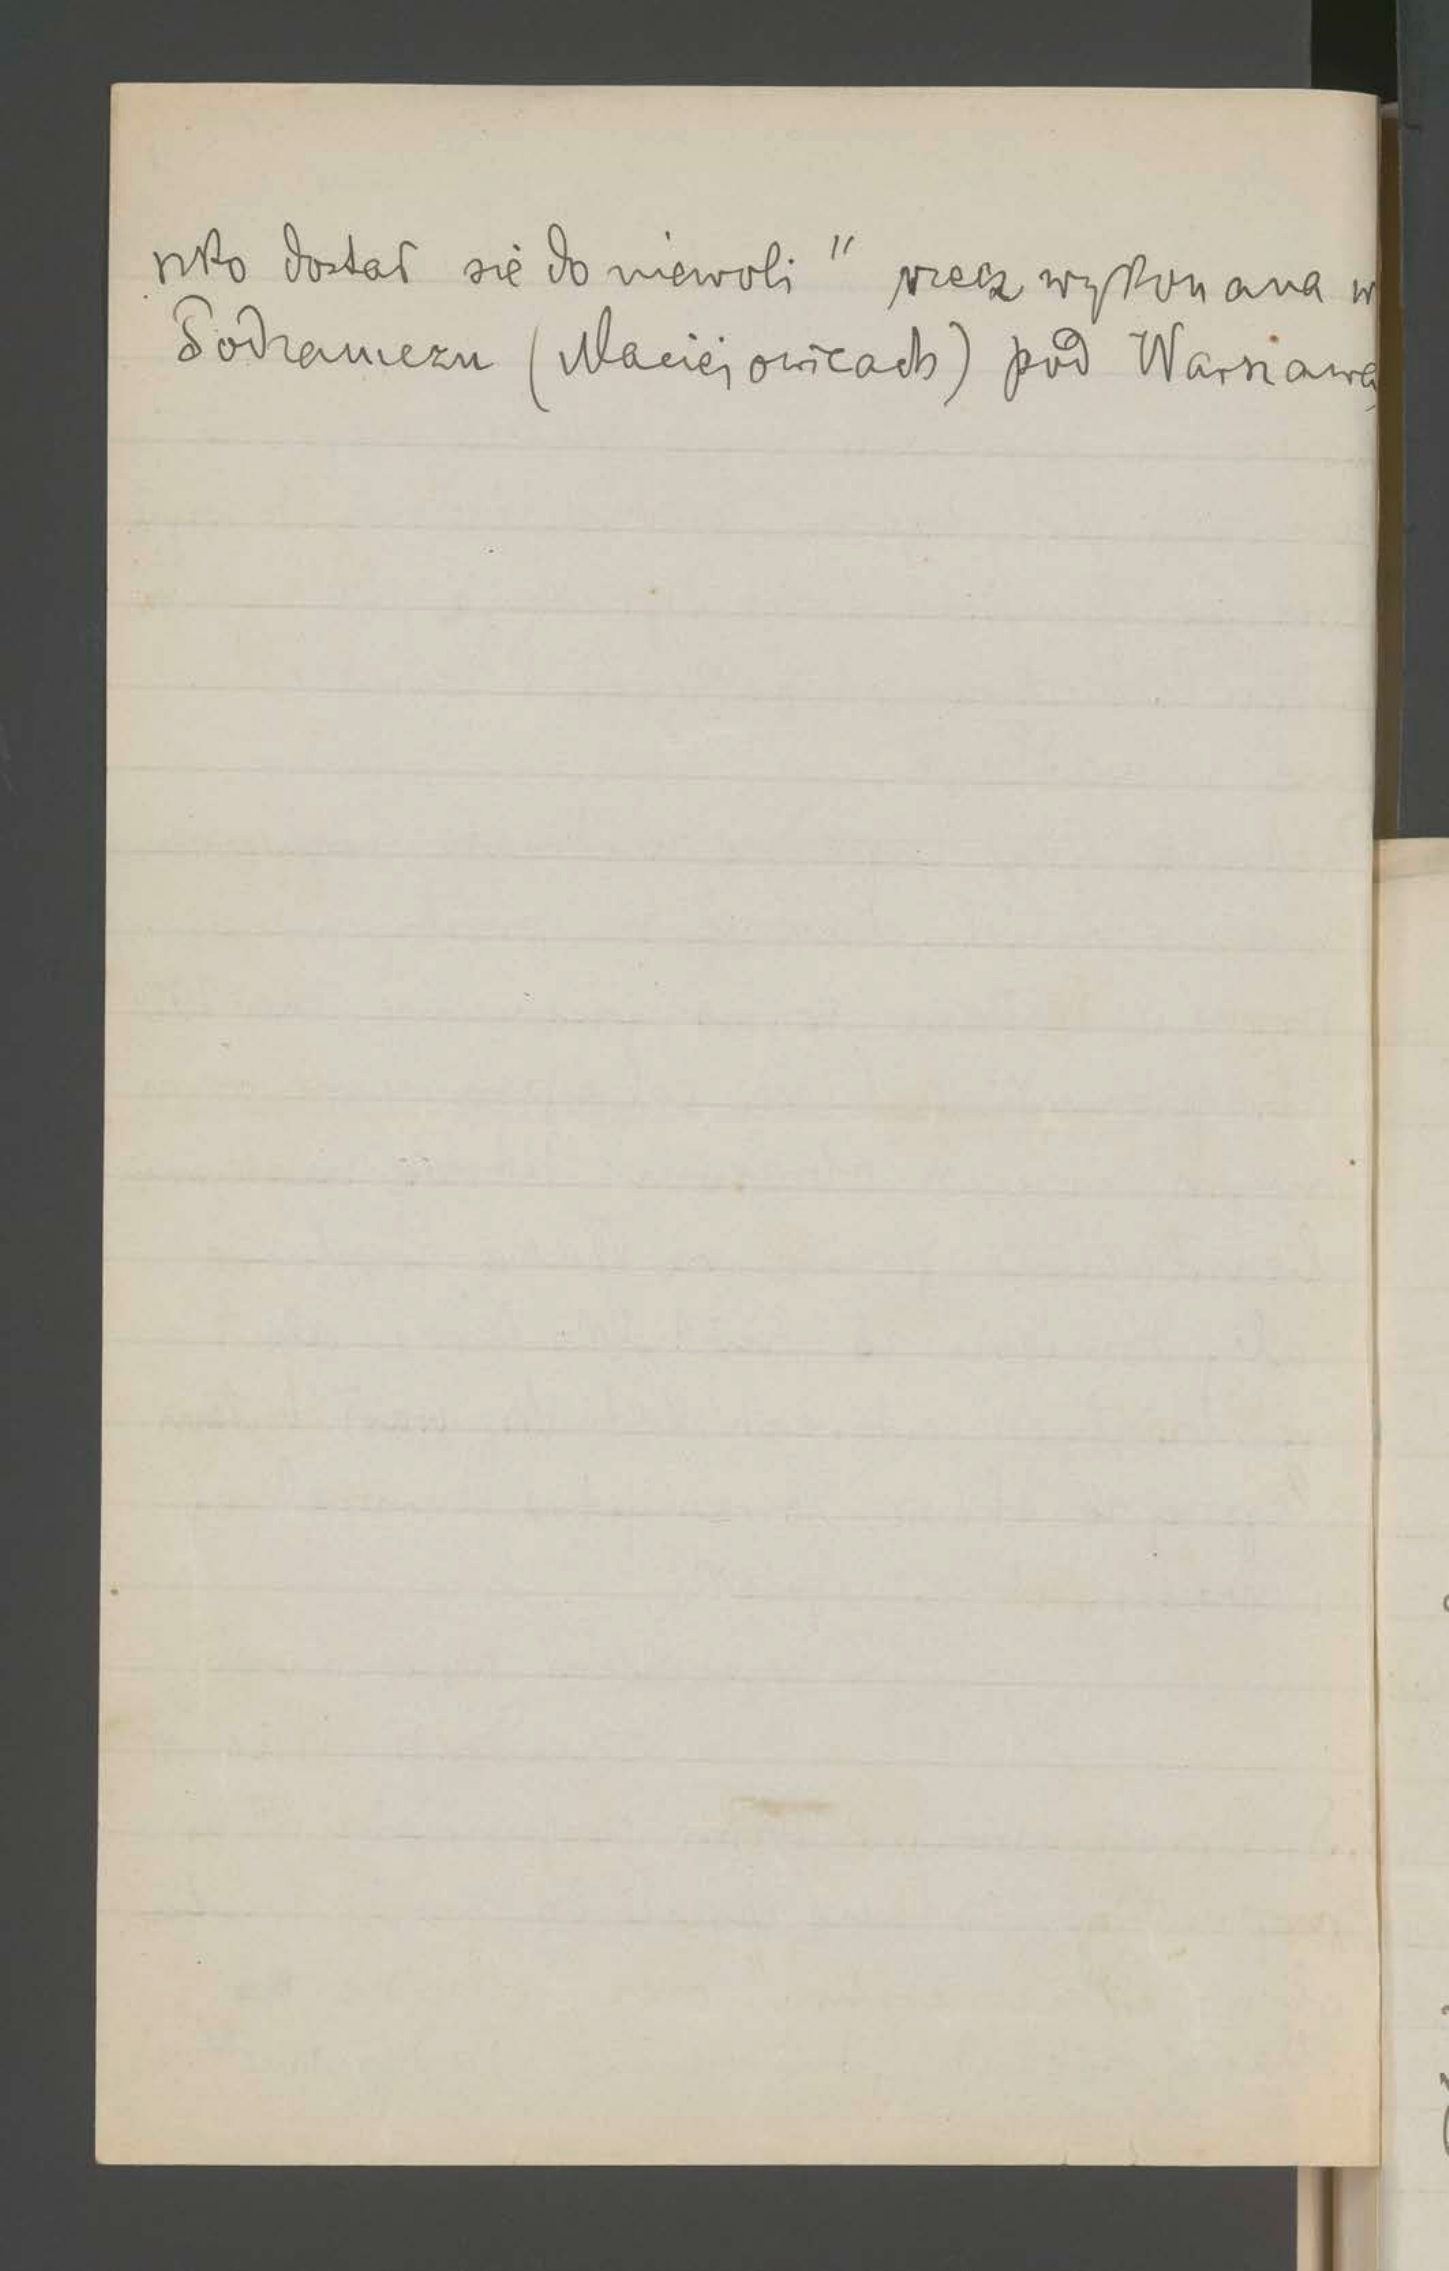 szko dostał się do niewoli" rzecz wykonana w
Podzamczu (Maciejowicach) pod Warszawą